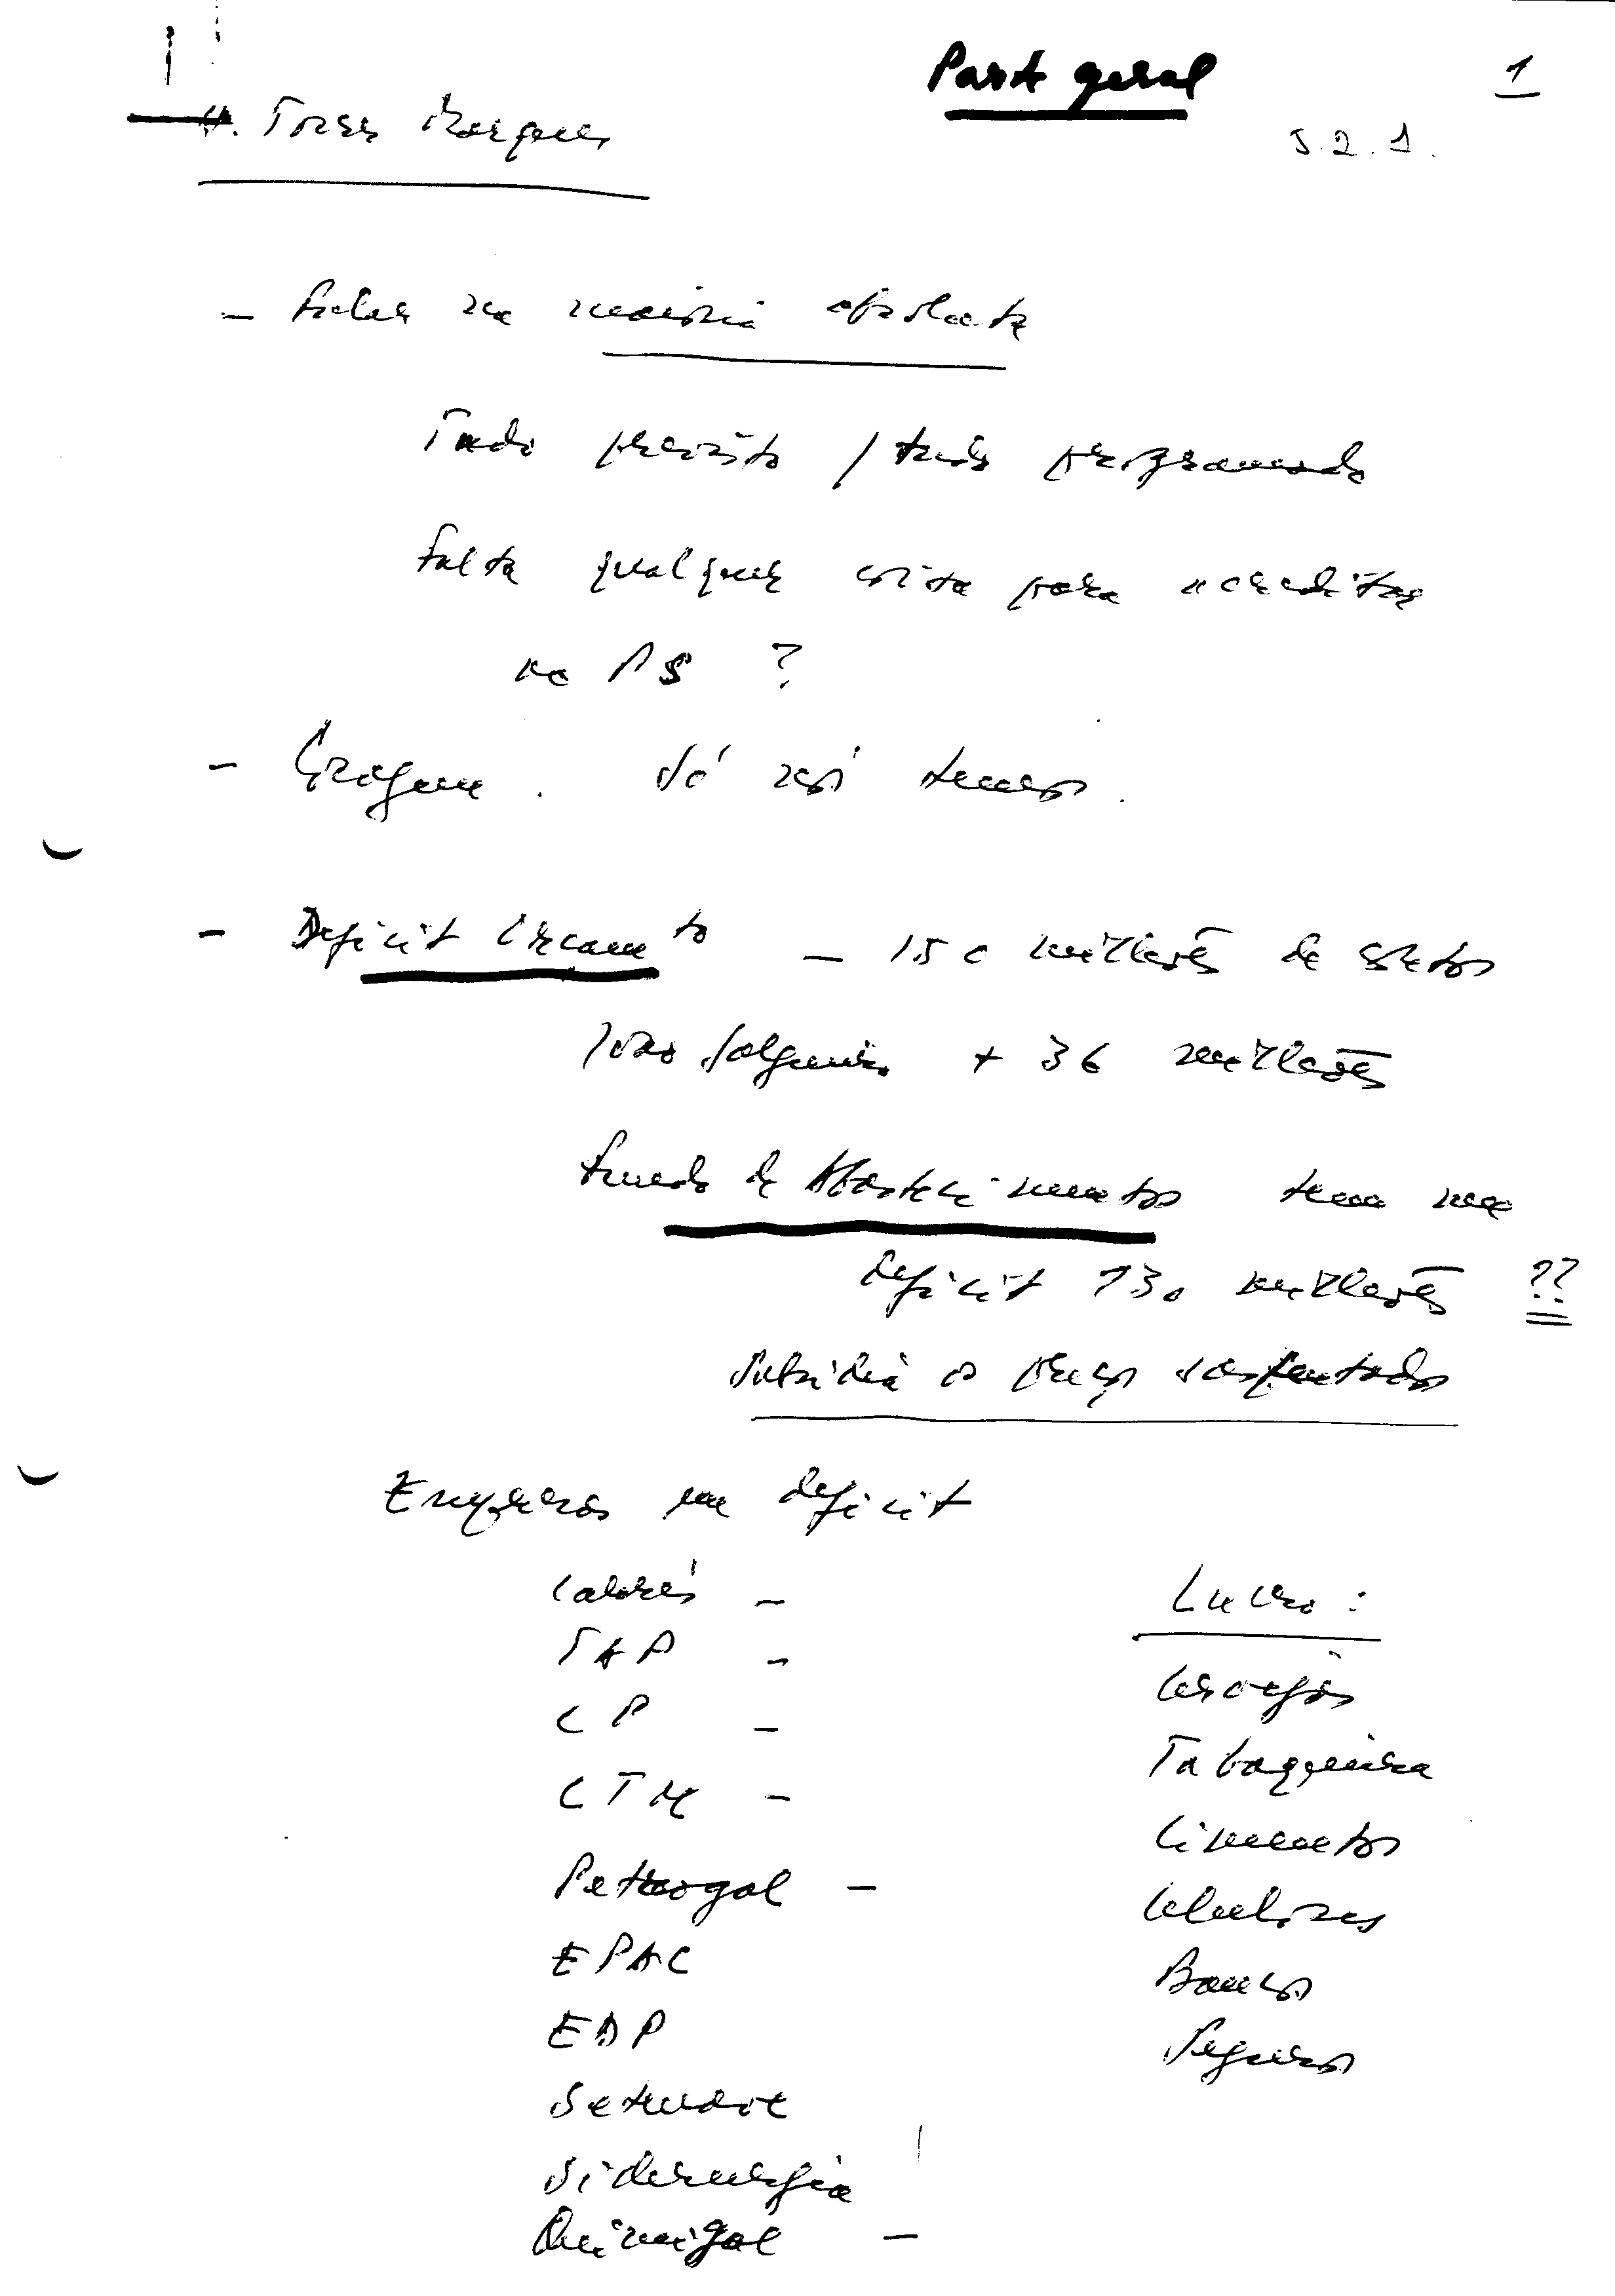 Parte geral
1
5.2.1.
H. Torres Marques
- Falar na maioria absoluta
Tudo previsto / tudo programado
Falta qualquer coisa para acreditar
no PS ?
- Coragem. Só nós temos.
- Deficit Orçamto - 150 milhões de contos
João Salgueiro + 36 milhões
Fundo de Abastecimentos tem um
deficit 130 milhões ??
Subsidia os preços
Empresas em deficit
TAP -
CP -
CTM -
Petrogal -
EPAC
EDP
Setenave
Siderurgia
Quimigal -
Lucro :
Cervejas
Tabaqueira
Cimentos
Celuloses
Bancos
Seguros